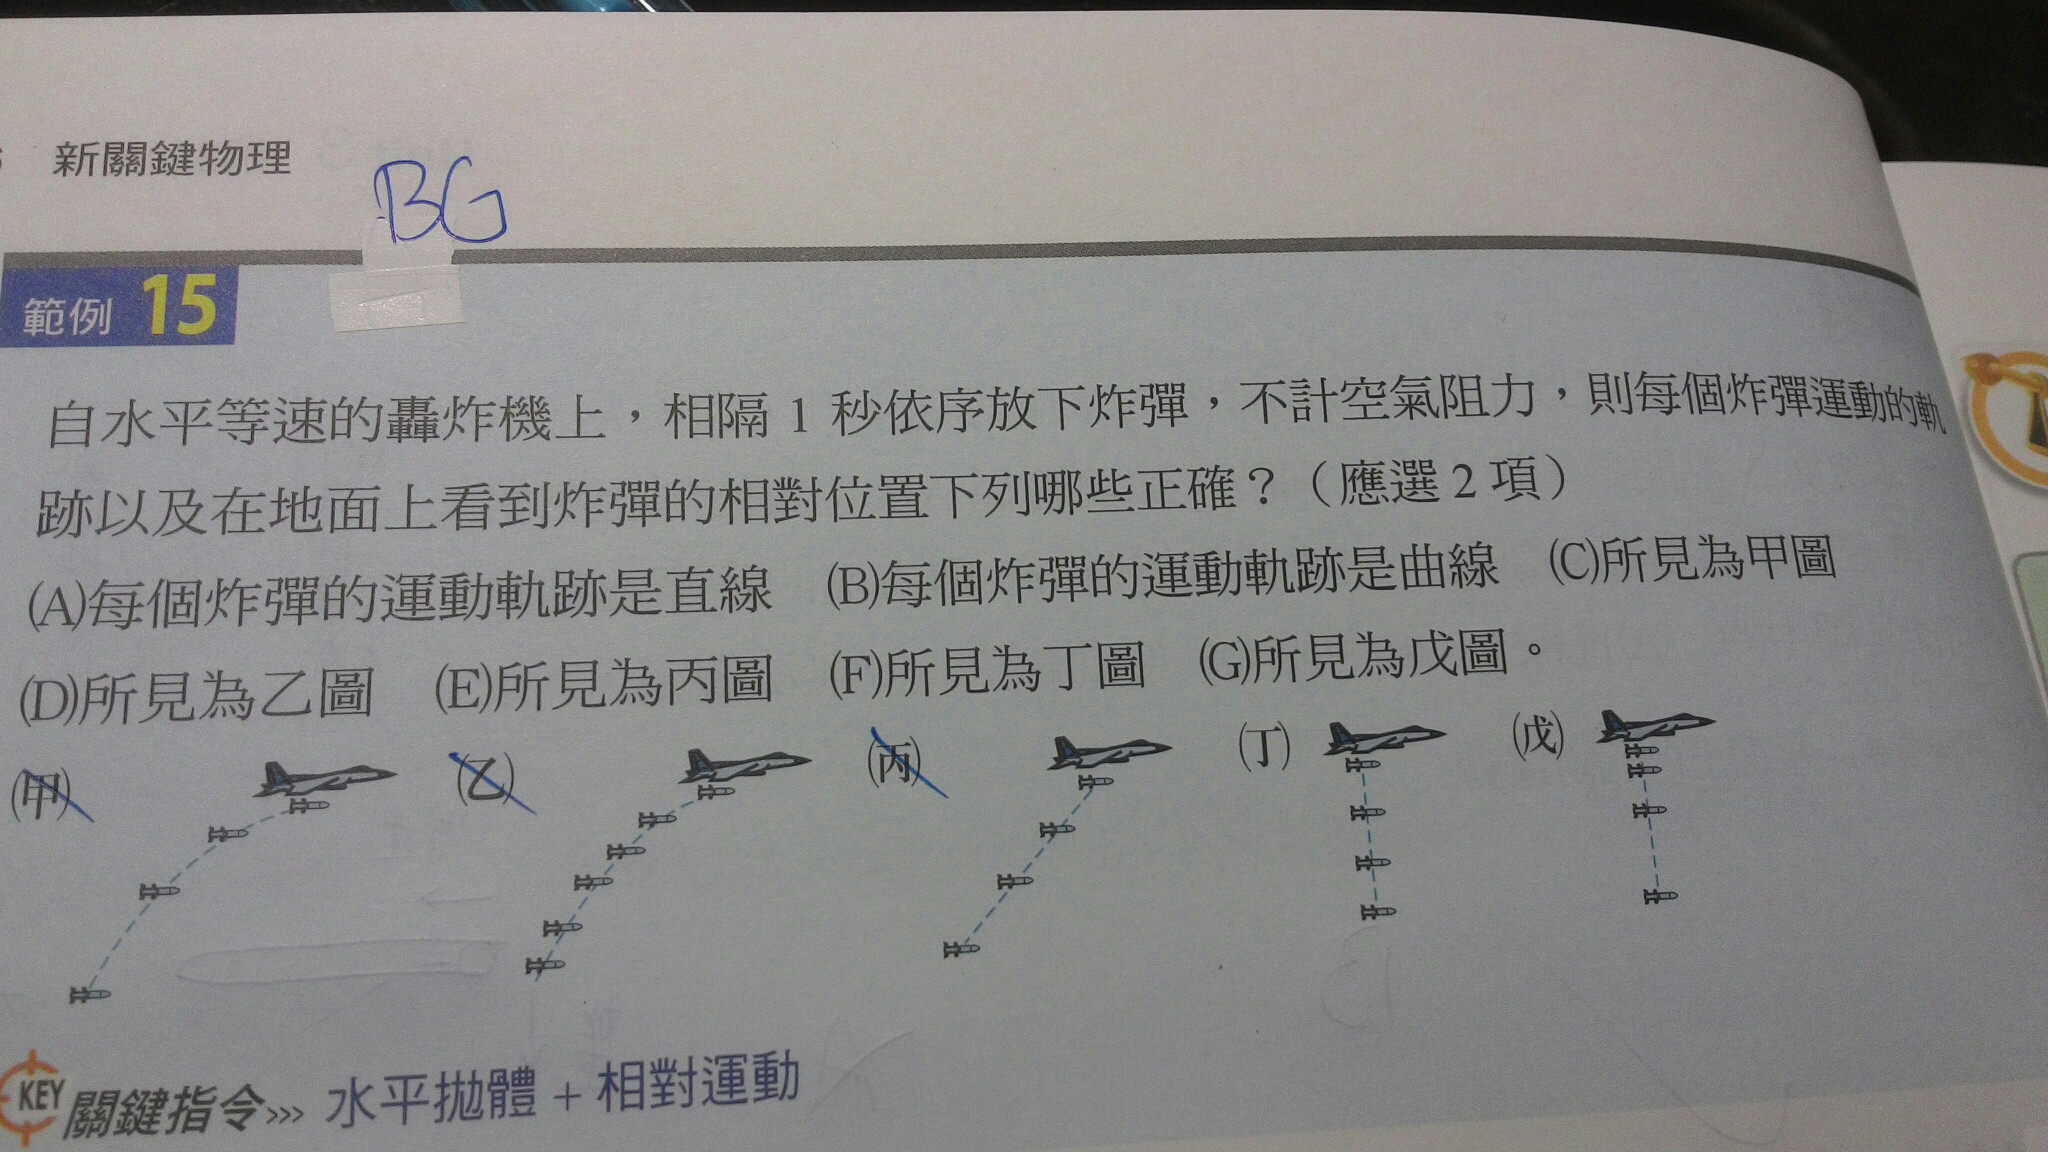 新關鍵物理
BG
範例 15
自水平等速的轟炸機上，相隔 1 秒依序放下炸彈，不計空氣阻力，則每個炸彈運動的軌
跡以及在地面上看到炸彈的相對位置下列哪些正確？（應選 2 項）
(A)每個炸彈的運動軌跡是直線 (B)每個炸彈的運動軌跡是曲線 (C)所見為甲圖
(D)所見為乙圖 (E)所見為丙圖 (F)所見為丁圖 (G)所見為戊圖。
(甲) (乙) (丙) (丁) (戊)
KEY 關鍵指令>>> 水平拋體 + 相對運動